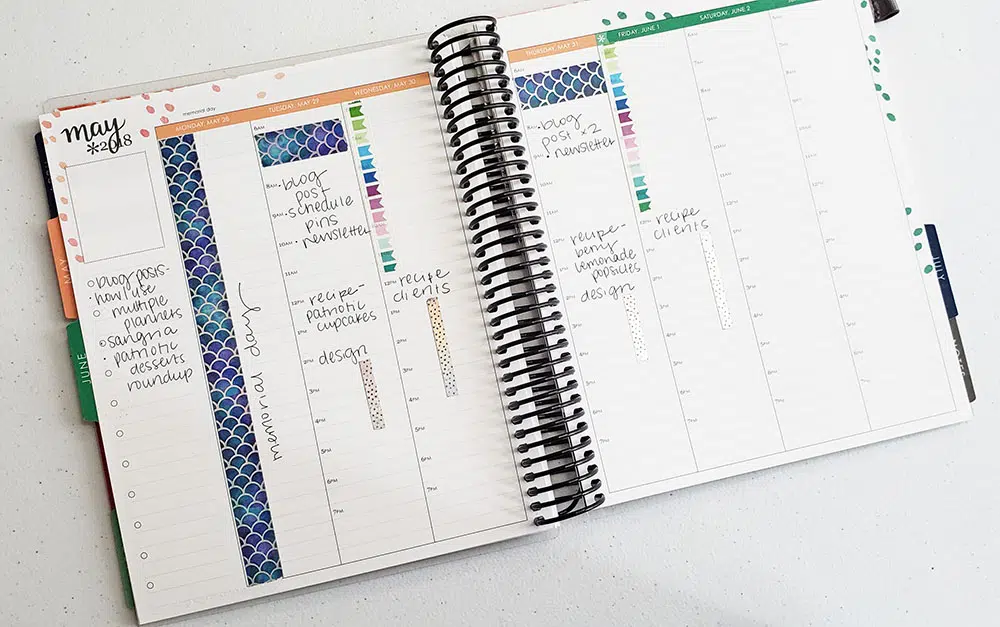 may
*2018
memorial day
MONDAY, MAY 28
TUESDAY, MAY 29
WEDNESDAY, MAY 30
THURSDAY, MAY 31
FRIDAY, JUNE 1
SATURDAY, JUNE 2
MAY
JUNE
JULY
blog posts-
how I use
multiple
planners
sangria
patriotic
desserts
roundup
memorial day
6AM
8AM
9AM
10AM
11AM
12PM
1PM
2PM
3PM
4PM
5PM
6PM
7PM
• blog
post
• schedule
pins
• newsletter
recipe-
patriotic
cupcakes
design
recipe
clients
1PM
2PM
3PM
4PM
5PM
6PM
7PM
6AM
8AM
9AM
10AM
11AM
• blog
post x2
• newsletter
recipe-
berry
lemonade
popsicles
design
recipe
clients